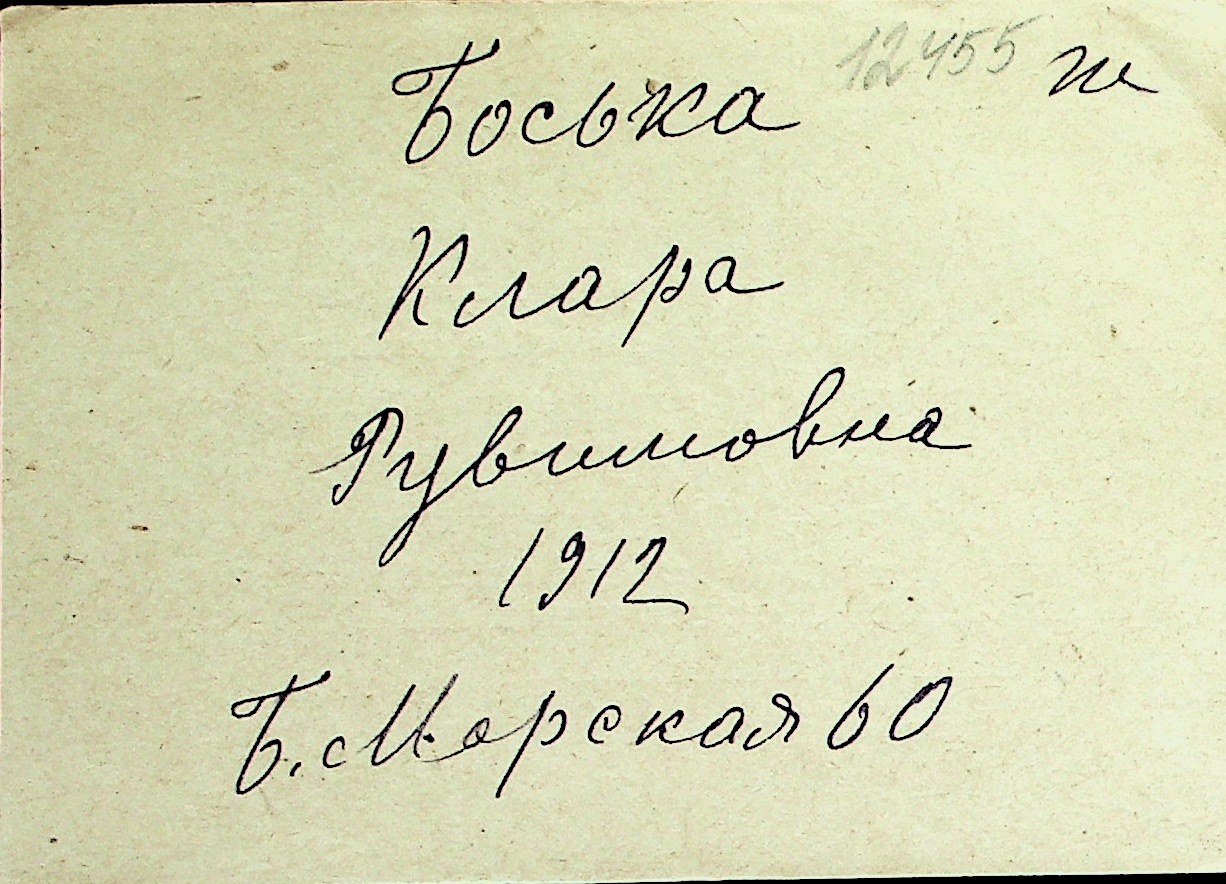 12455 ж
Боська
Клара
Рувимовна
1912
Б. Морская 60